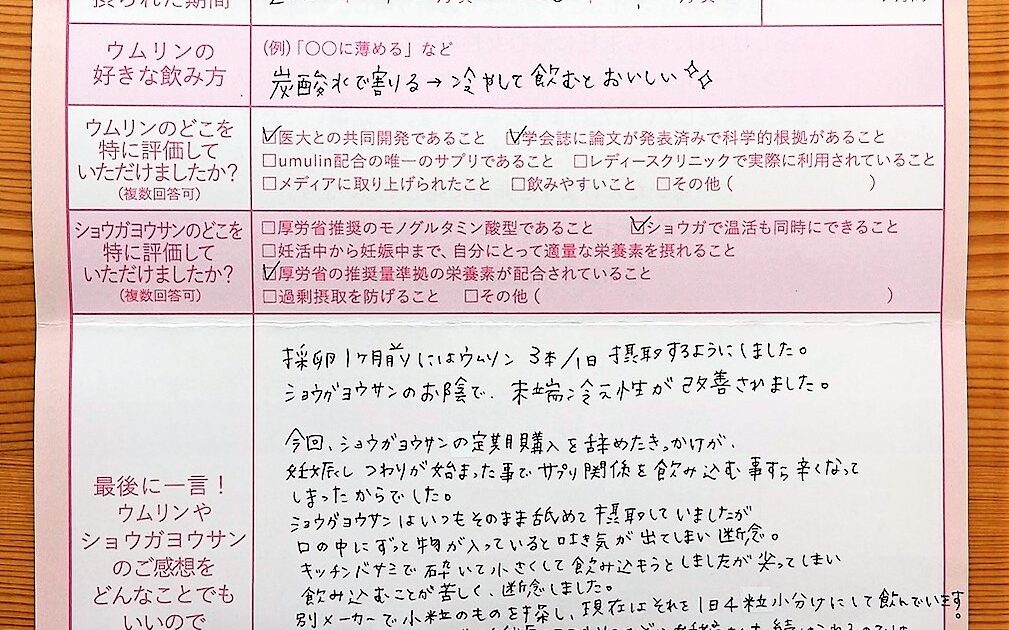 摂られた期間
ウムリンの
好きな飲み方
(例)「〇〇に薄める」など
炭酸水で割る→冷やして飲むとおいしい
ウムリンのどこを
特に評価して
いただけましたか?
(複数回答可)
医大との共同開発であること 学会誌に論文が発表済みで科学的根拠があること
□umulin配合の唯一のサプリであること □レディースクリニックで実際に利用されていること
□メディアに取り上げられたこと □飲みやすいこと □その他( )
ショウガヨウサンのどこを
特に評価して
いただけましたか?
(複数回答可)
□厚労省推奨のモノグルタミン酸型であること ショウガで温活も同時にできること
□妊活中から妊娠中まで、自分にとって適量な栄養素を摂れること
厚労省の推奨量準拠の栄養素が配合されていること
□過剰摂取を防げること □その他( )
最後に一言!
ウムリンや
ショウガヨウサン
のご感想を
どんなことでも
いいので
採卵1ケ月前にはウムリン 3本/1日 摂取するようにしました。
ショウガヨウサンのお陰で、末端冷え性が改善されました。
今回、ショウガヨウサンの定期購入を辞めたきっかけが、
妊娠し つわりが始まった事でサプリ関係を飲み込む事すら辛くなって
しまったからでした。
ショウガヨウサンはいつもそのまま舐めて摂取していましたが
口の中にずっと物が入っていると吐き気が出てしまい断念。
キッチンバサミで砕いて小さくして飲み込もうとしましたが尖ってしまい
飲み込むことが苦しく、断念しました。
別メーカーで小粒のものを探し、現在はそれを1日4粒小分けにして飲んでいます。